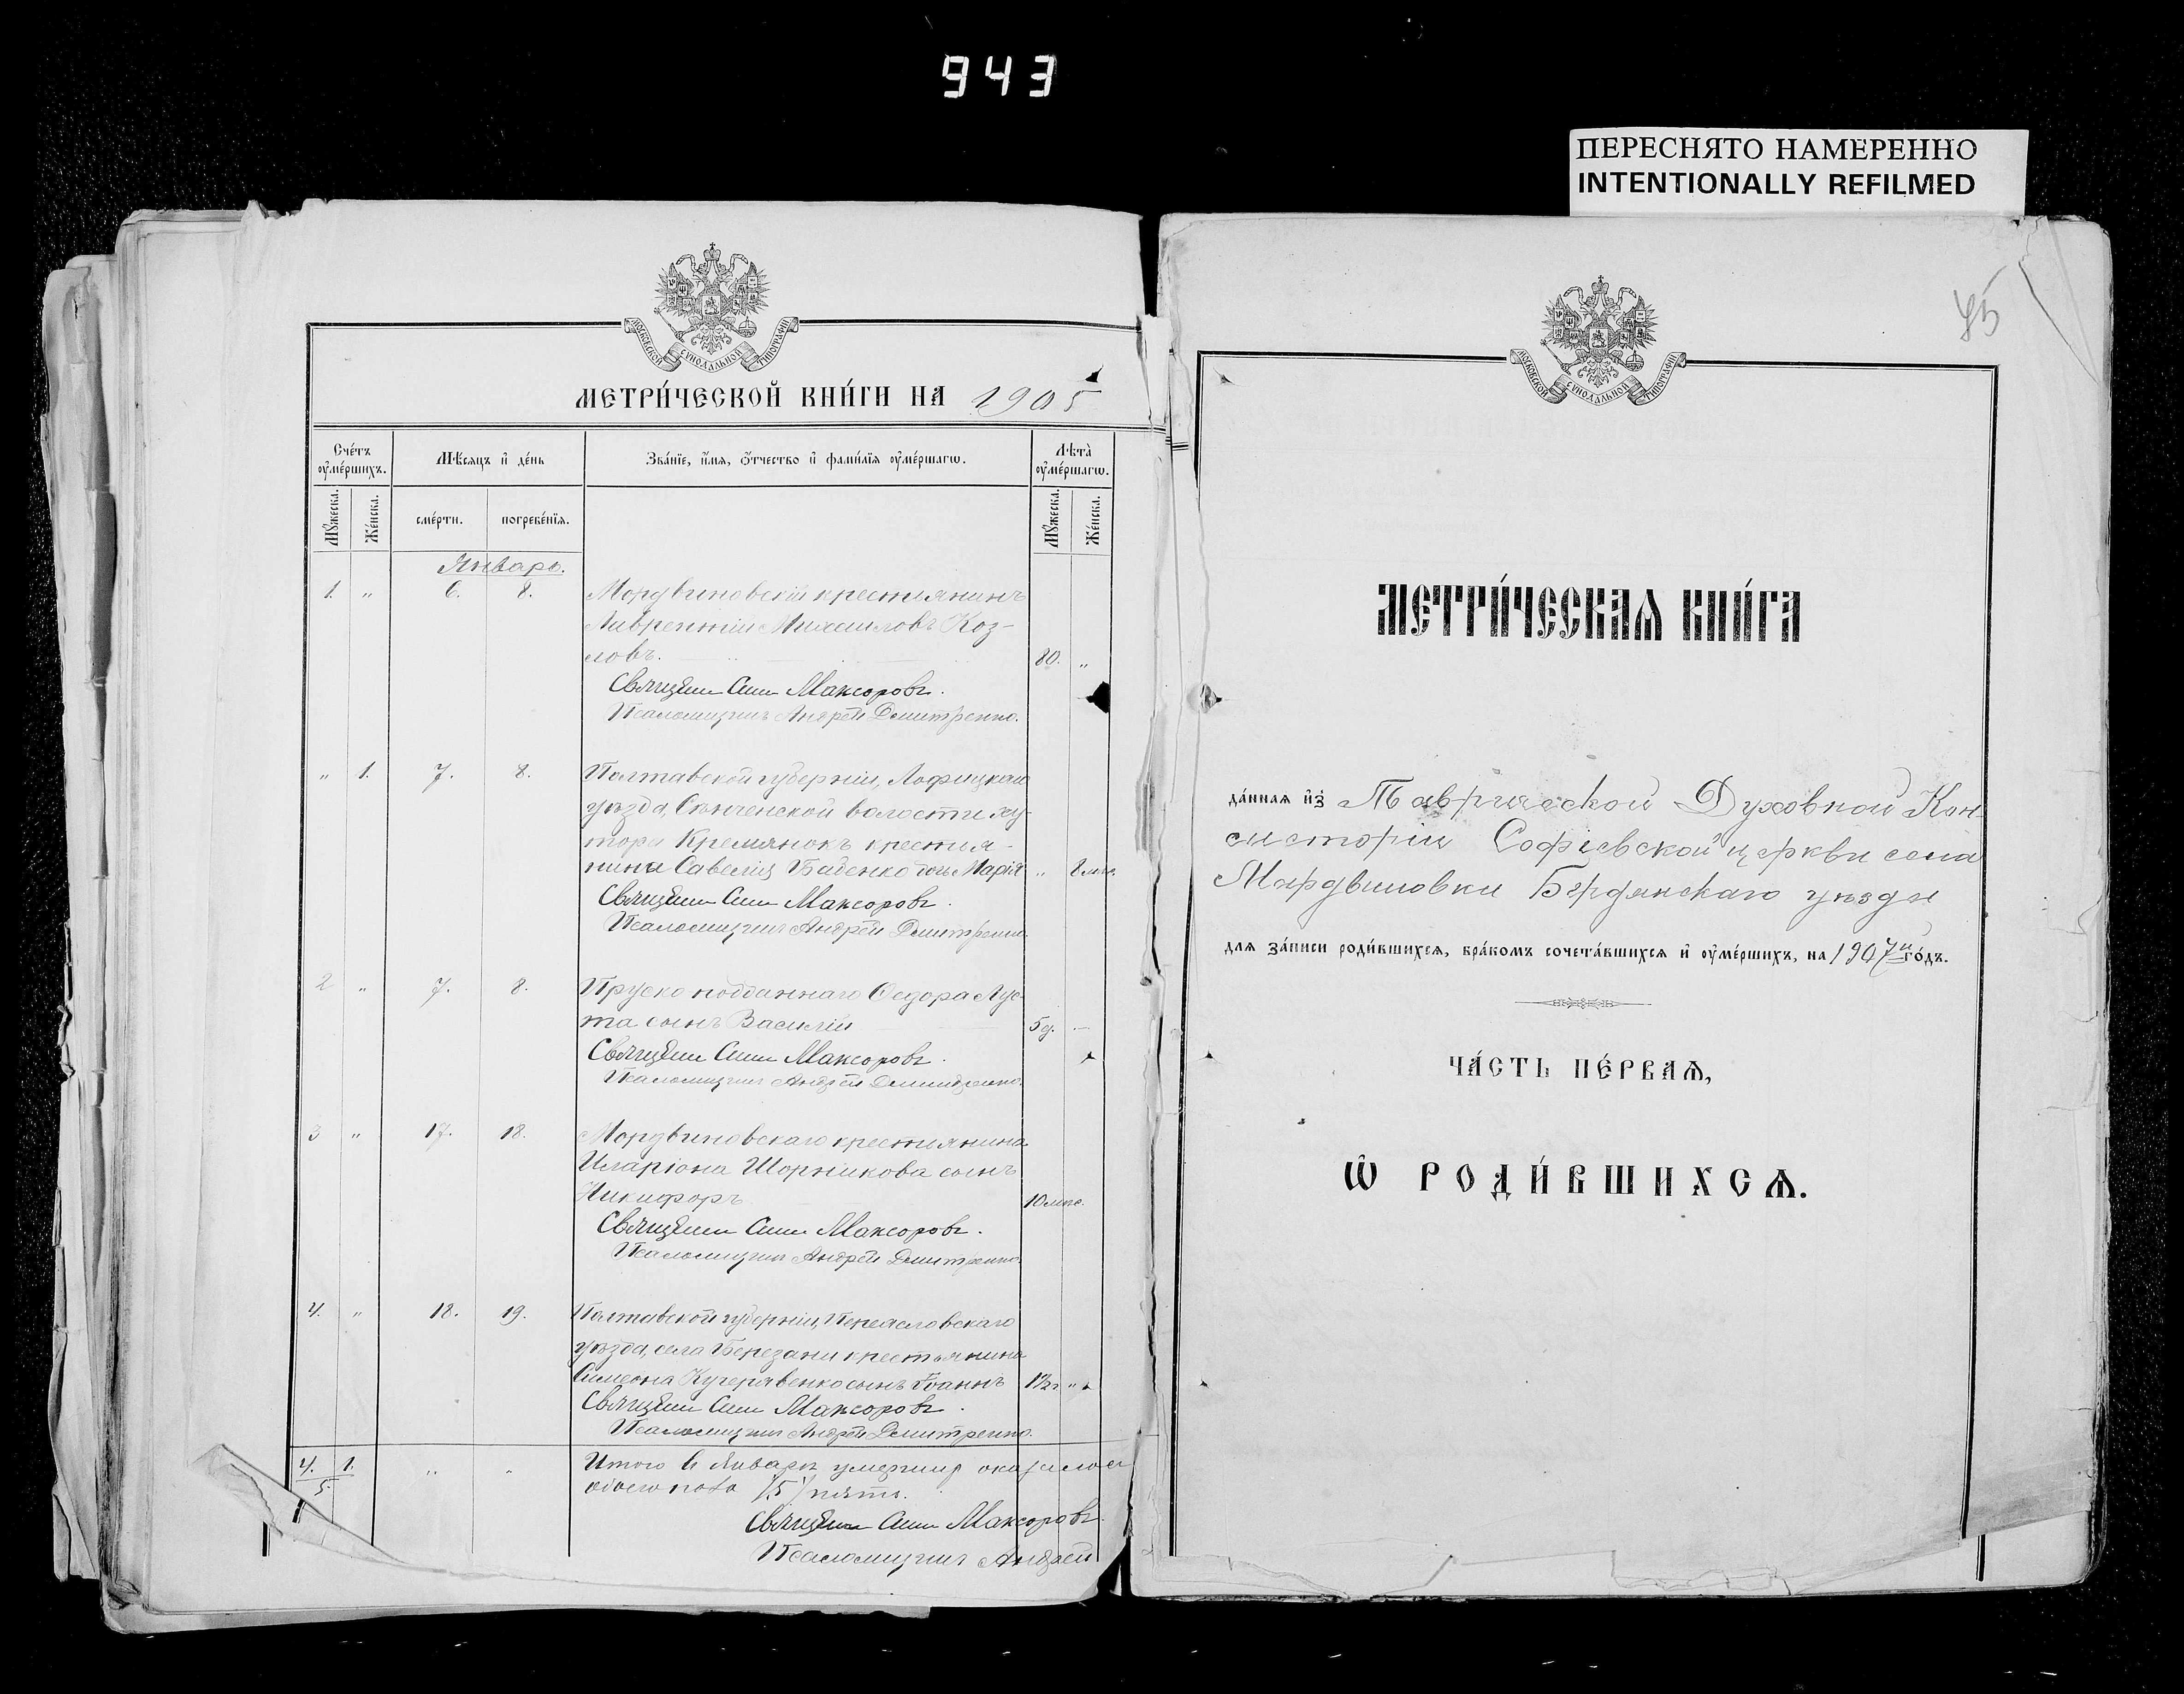 943
ПЕРЕСНЯТО НАМЕРЕННО
INTENTIONALLY REFILMED
МОСКОВСКОЙ СѴНОДАЛЬНОЙ ТИПОГРАФІИ
МЕТРИ́ЧЕСКОЙ КНИ́ГИ НА 1905
Сче́тъ ᲂу҆ме́ршихъ.
Мѣ́сяцъ и҆ де́нь
Зва́нїе, и҆́мя, ѻ҆́тчество и҆ фами́лїя ᲂу҆ме́ршагѡ.
Лѣта̀ ᲂу҆ме́ршагѡ.
Мꙋ́жеска.
Же́нска.
сме́рти.
погребе́нїя.
Мꙋ́жеска.
Же́нска.
Январь.
1. " 6. 8. Мордвиновскій крестьянинъ
Лаврентій Михаиловъ Коз-
ловъ. 80. "
Священ Максоровъ.
Псаломщикъ Андрей Дмитренко.
" 1. 7. 8. Полтавской губерніи, Лофицкаго
уѣзда, Сѣнченской волости ху-
тора Кремянокъ крестья-
нина Савелія Баденко дочь Марія " 8 мѣс.
Священ Максоровъ.
Псаломщикъ Андрей Дмитренко.
2 " 7. 8. Пруско подданнаго Ѳедора Лус-
та сынъ Василій 5 д. —
Священ Максоровъ.
Псаломщикъ Андрей Дмитренко.
3 " 17. 18. Мордвиновскаго крестьянина
Иларіона Шорникова сынъ
Никифоръ 10 мѣс.
Священ Максоровъ.
Псаломщикъ Андрей Дмитренко.
4. " 18. 19. Полтавской губерніи, Переясловскаго
уѣзда, села Березани крестьянина
Симеона Кучерявенко сынъ Іоаннъ 1½ г. "
Священ Максоровъ.
Псаломщикъ Андрей Дмитренко.
4. 1. " " Итого въ Январѣ умершихъ оказалось
5. обоего пола /5/ пять.
Священ Максоровъ.
Псаломщикъ Андрей
45
МОСКОВСКОЙ СѴНОДАЛЬНОЙ ТИПОГРАФІИ
МЕТРИ́ЧЕСКАѦ КНИ́ГА
да́нная и҆з̾ Таврической Духовной Кон-
систоріи Софіевской церкви села
Мордвиновки Бердянскаго уѣзда
для за́писи роди́вшихся, бра́комъ сочета́вшихся и҆ ᲂу҆ме́ршихъ, на 1907й го́дъ.
ЧА́СТЬ ПЕ́РВАѦ,
Ѡ҆ РОДИ́ВШИХСѦ.